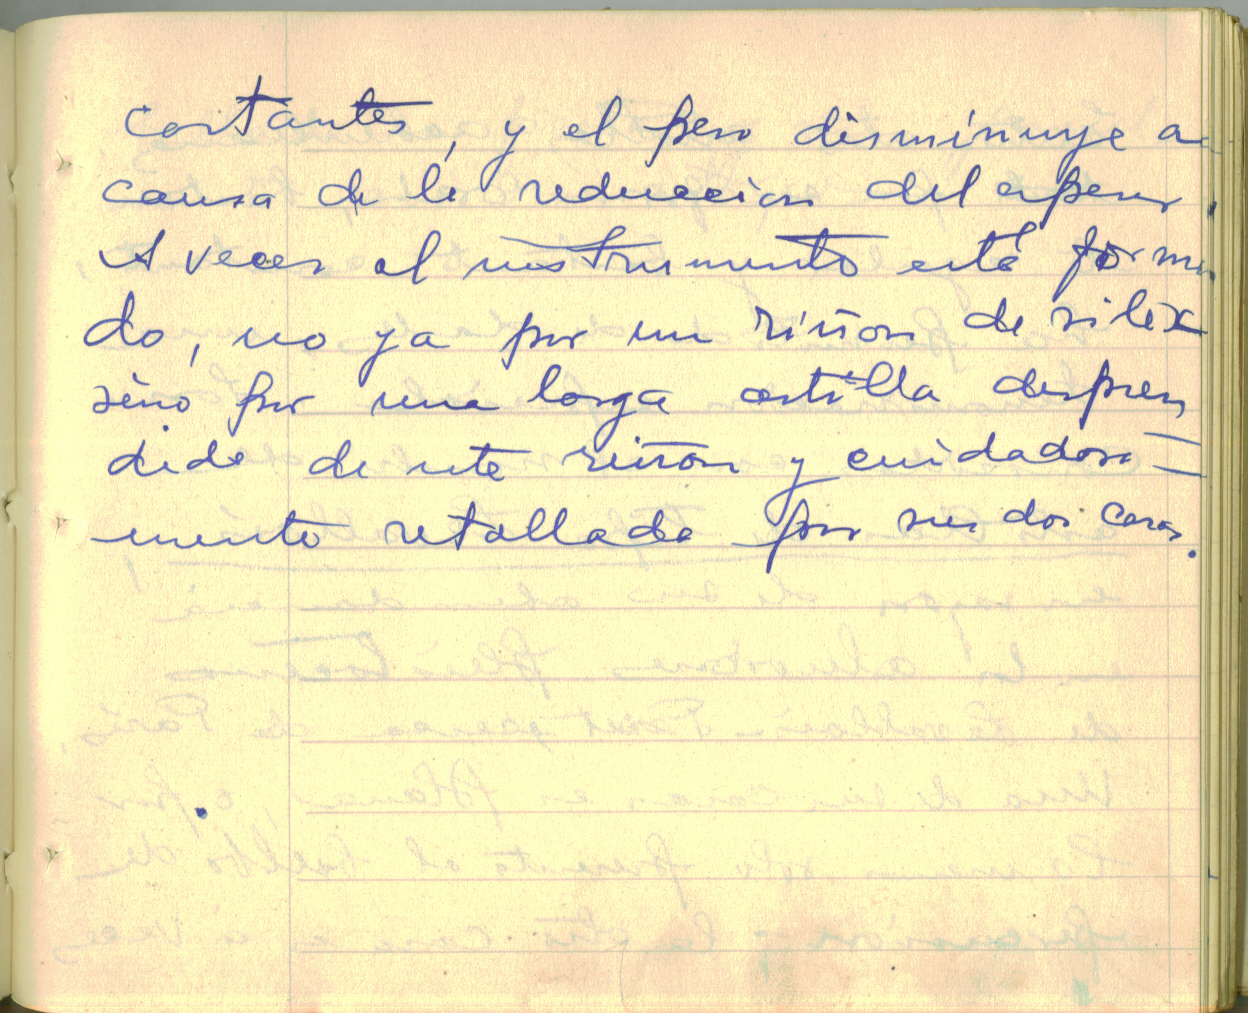 cortantes, y el peso disminuye a
causa de la reduccion del espesor.
A veces el instrumento está forma
do, no ya por un riñon de silex
sino por una larga astilla despren
dida de este riñon y cuidadosa=
mente retallada por sus dos caras.